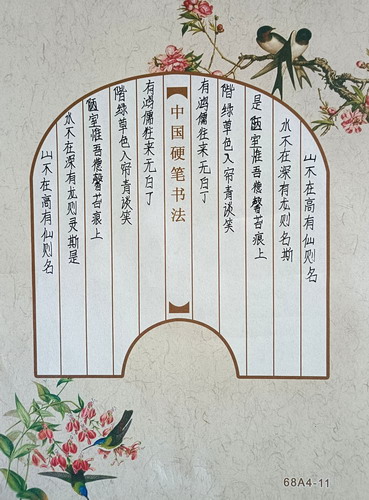 山不在高有仙则名
水不在深有龙则名斯
是陋室惟吾德馨苔痕上
階绿草色入帘青谈笑
有鸿儒往来无白丁
中国硬笔书法
有鸿儒往来无白丁
階绿草色入帘青谈笑
陋室惟吾德馨苔痕上
水不在深有龙则灵斯是
山不在高有仙则名
68A4-11